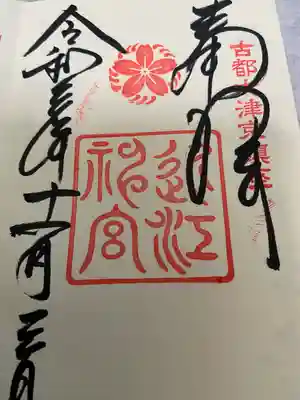 古都大津京鎮座
奉拝
近江
神宮
令和三年十一月三日